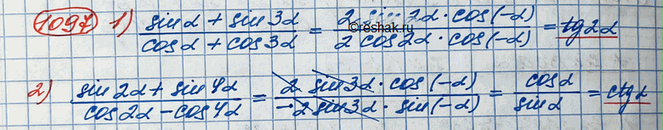 1097 1) (sinα + sin3α)/(cosα + cos3α) = (2 sin2α · cos(-α))/(2 cos2α · cos(-α)) = tg2α
2) (sin2α + sin4α)/(cos2α - cos4α) = (2 sin3α · cos(-α))/(-2 sin3α · sin(-α)) = cosα/sinα = ctgα